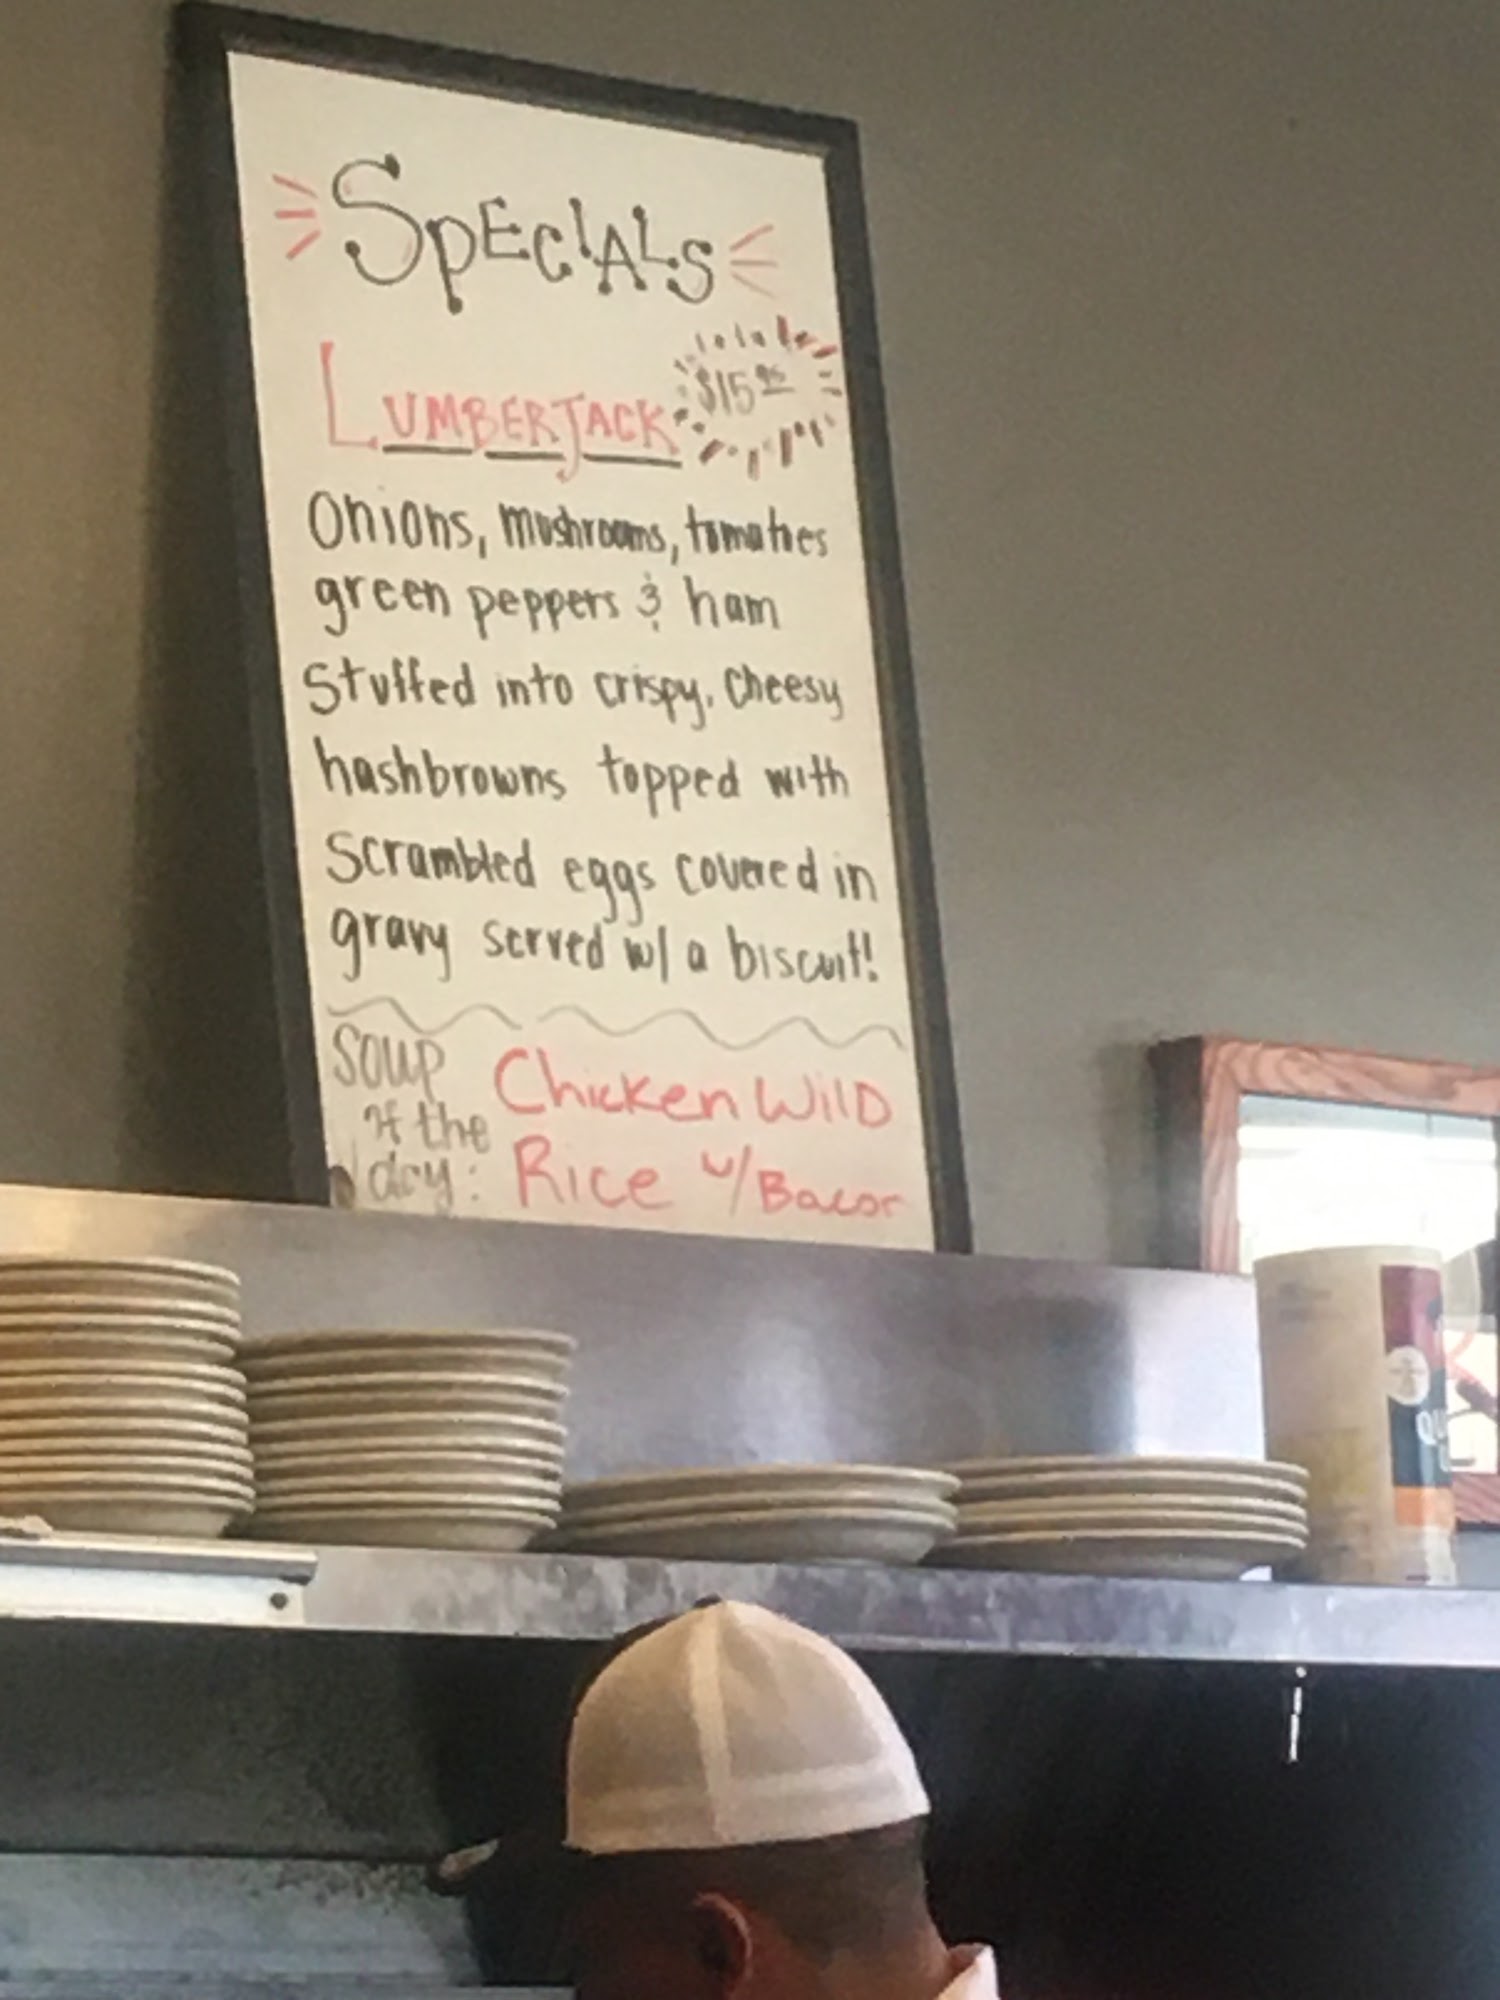 SpECIALS
LUMBERJACK $15.95
Onions, mushrooms, tomatoes
green peppers & ham
Stuffed into crispy, cheesy
hashbrowns topped with
Scrambled eggs covered in
gravy served w/ a biscuit!
Soup Chicken Wild
of the
day: Rice w/ Bacon